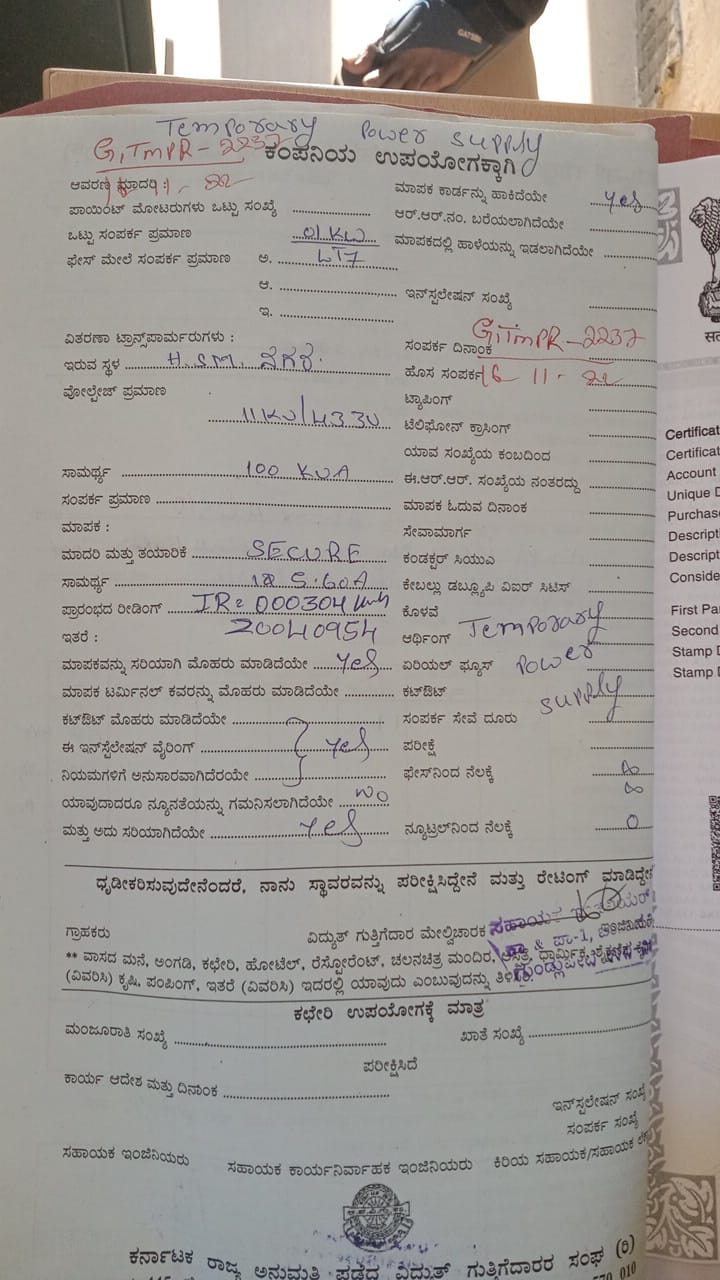 GATSBY
Temporary Power Supply
GTMPR-2237
ಕಂಪನಿಯ ಉಪಯೋಗಕ್ಕಾಗಿ
ಆವರಣ ಮಾದರಿ :
ಪಾಯಿಂಟ್ ಮೋಟರುಗಳು ಒಟ್ಟು ಸಂಖ್ಯೆ
ಒಟ್ಟು ಸಂಪರ್ಕ ಪ್ರಮಾಣ 01 KW
ಫೇಸ್ ಮೇಲೆ ಸಂಪರ್ಕ ಪ್ರಮಾಣ ಅ. LT7
ಆ.
ಇ.
ವಿತರಣಾ ಟ್ರಾನ್ಸ್‌ಪಾರ್ಮರುಗಳು :
ಇರುವ ಸ್ಥಳ H.S.M. ನಗರ.
ವೋಲ್ಟೇಜ್ ಪ್ರಮಾಣ
11KV/433V
ಸಾಮರ್ಥ್ಯ 100 KVA
ಸಂಪರ್ಕ ಪ್ರಮಾಣ
ಮಾಪಕ :
ಮಾದರಿ ಮತ್ತು ತಯಾರಿಕೆ SECURE
ಸಾಮರ್ಥ್ಯ 5-60A
ಪ್ರಾರಂಭದ ರೀಡಿಂಗ್ IR=000304
ಇತರೆ : 20040954
ಮಾಪಕವನ್ನು ಸರಿಯಾಗಿ ಮೊಹರು ಮಾಡಿದೆಯೇ Yes
ಮಾಪಕ ಟರ್ಮಿನಲ್ ಕವರನ್ನು ಮೊಹರು ಮಾಡಿದೆಯೇ
ಕಟ್‌ಔಟ್ ಮೊಹರು ಮಾಡಿದೆಯೇ
ಈ ಇನ್‌ಸ್ಟಲೇಷನ್ ವೈರಿಂಗ್ Yes
ನಿಯಮಗಳಿಗೆ ಅನುಸಾರವಾಗಿದೆರಯೇ
ಯಾವುದಾದರೂ ನ್ಯೂನತೆಯನ್ನು ಗಮನಿಸಲಾಗಿದೆಯೇ No
ಮತ್ತು ಅದು ಸರಿಯಾಗಿದೆಯೇ Yes
ಮಾಪಕ ಕಾರ್ಡನ್ನು ಹಾಕಿದೆಯೇ Yes
ಆರ್.ಆರ್.ನಂ. ಬರೆಯಲಾಗಿದೆಯೇ
ಮಾಪಕದಲ್ಲಿ ಹಾಳೆಯನ್ನು ಇಡಲಾಗಿದೆಯೇ
ಇನ್‌ಸ್ಟಲೇಷನ್ ಸಂಖ್ಯೆ
GTMPR-2237
ಸಂಪರ್ಕ ದಿನಾಂಕ
ಹೊಸ ಸಂಪರ್ಕ 16-11-22
ಟ್ಯಾಪಿಂಗ್
ಟೆಲಿಫೋನ್ ಕ್ರಾಸಿಂಗ್
ಯಾವ ಸಂಖ್ಯೆಯ ಕಂಬದಿಂದ
ಈ.ಆರ್.ಆರ್. ಸಂಖ್ಯೆಯ ನಂತರದ್ದು
ಮಾಪಕ ಓದುವ ದಿನಾಂಕ
ಸೇವಾಮಾರ್ಗ
ಕಂಡಕ್ಟರ್ ಸಿಯುಎ
ಕೇಬಲ್ಲು ಡಬ್ಲ್ಯೂಪಿ ವಿಐರ್ ಸಿಟಿಸ್
ಕೊಳವೆ
ಆರ್ಥಿಂಗ್ Temporary
ಏರಿಯಲ್ ಫ್ಯೂಸ್ Power
ಕಟ್‌ಔಟ್ Supply
ಸಂಪರ್ಕ ಸೇವೆ ದೂರು
ಪರೀಕ್ಷೆ
ಫೇಸ್‌ನಿಂದ ನೆಲಕ್ಕೆ ∞
∞
ನ್ಯೂಟ್ರಲ್‌ನಿಂದ ನೆಲಕ್ಕೆ 0
ಧೃಡೀಕರಿಸುವುದೇನೆಂದರೆ, ನಾನು ಸ್ಥಾವರವನ್ನು ಪರೀಕ್ಷಿಸಿದ್ದೇನೆ ಮತ್ತು ರೇಟಿಂಗ್ ಮಾಡಿದ್ದೇನೆ
ಗ್ರಾಹಕರು ವಿದ್ಯುತ್ ಗುತ್ತಿಗೆದಾರ ಮೇಲ್ವಿಚಾರಕ ಸಹಾಯಕ
** ವಾಸದ ಮನೆ, ಅಂಗಡಿ, ಕಛೇರಿ, ಹೋಟೆಲ್, ರೆಸ್ಟೋರೆಂಟ್, ಚಲನಚಿತ್ರ ಮಂದಿರ, ಆಸ್ಪತ್ರೆ, ಧಾರ್ಮಿಕ,
(ವಿವರಿಸಿ) ಕೃಷಿ, ಪಂಪಿಂಗ್, ಇತರೆ (ವಿವರಿಸಿ) ಇದರಲ್ಲಿ ಯಾವುದು ಎಂಬುವುದನ್ನು ತಿಳಿಸಿ
ಕಛೇರಿ ಉಪಯೋಗಕ್ಕೆ ಮಾತ್ರ
ಮಂಜೂರಾತಿ ಸಂಖ್ಯೆ ಖಾತೆ ಸಂಖ್ಯೆ
ಪರೀಕ್ಷಿಸಿದೆ
ಕಾರ್ಯ ಆದೇಶ ಮತ್ತು ದಿನಾಂಕ
ಇನ್‌ಸ್ಟಲೇಷನ್ ಸಂಖ್ಯೆ
ಸಂಪರ್ಕ ಸಂಖ್ಯೆ
ಸಹಾಯಕ ಇಂಜಿನಿಯರು ಸಹಾಯಕ ಕಾರ್ಯನಿರ್ವಾಹಕ ಇಂಜಿನಿಯರು ಕಿರಿಯ ಸಹಾಯಕ/ಸಹಾಯಕ
ಕರ್ನಾಟಕ ರಾಜ್ಯ ಅನುಮತಿ ಪಡೆದ ವಿದ್ಯುತ್ ಗುತ್ತಿಗೆದಾರರ ಸಂಘ (ರಿ)
Certificat
Certificat
Account
Unique D
Purchase
Descript
Descript
Conside
First Pa
Second
Stamp D
Stamp D